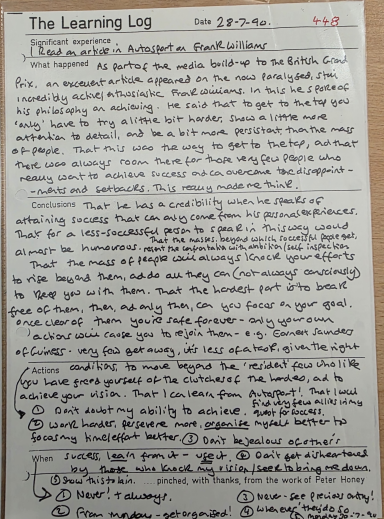 The Learning Log Date 28-7-90. 448
Significant experience
I Read an article in Autosport on Frank Williams
What happened As part of the media build-up to the British Grand
Prix, an excellent article appeared on the now paralysed, still
incredibly active/enthusiastic Frank Williams. In this he spoke of
his philosophy on achieving. He said that to get to the top you
'only' have to try a little bit harder, show a little more
attention to detail, and be a bit more persistent than the mass
of people. That this was the way to get to the top, and that
there was always room there for those very few people who
really want to achieve success and can overcome the disappoint-
-ments and setbacks. This really made me think.
Conclusions That he has a credibility when he speaks of
attaining success that can only come from his personal experiences.
That for a less-successful person to speak in this way would
almost be humourous. That the masses, beyond which successful people get,
resent the confrontation with ambition/self inspection
That the mass of people will always knock your efforts
to rise beyond them, and do all they can (not always consciously)
to keep you with them. That the hardest part is to break
free of them, then, and only then, can you focus on your goal.
once clear of them you're safe forever - only your own
actions will cause you to rejoin them - e.g. Earnest Saunders
of Guiness - very few get away, it's less of a task, given the right
conditions, to move beyond the 'resident' few who like
Actions
you have freed yourself of the clutches of the hordes, and to
achieve your vision. That I can learn from Autosport! That I will
find very few allies in my
quest for success.
① Don't doubt my ability to achieve.
② Work harder, persevere more, organise myself better to
focus my time/effort better. ③ Don't be jealous of others
When success, learn from it - use it. ④ Don't get disheartened
by those who knock my vision/seek to bring me down.
⑤ Show this to Iain. .... pinched, with thanks, from the work of Peter Honey
① Never! + always. ③ Never - see previous entry!
② From monday - get organised! ④ Whenever they do so.
⑤ monday 30-7-90.